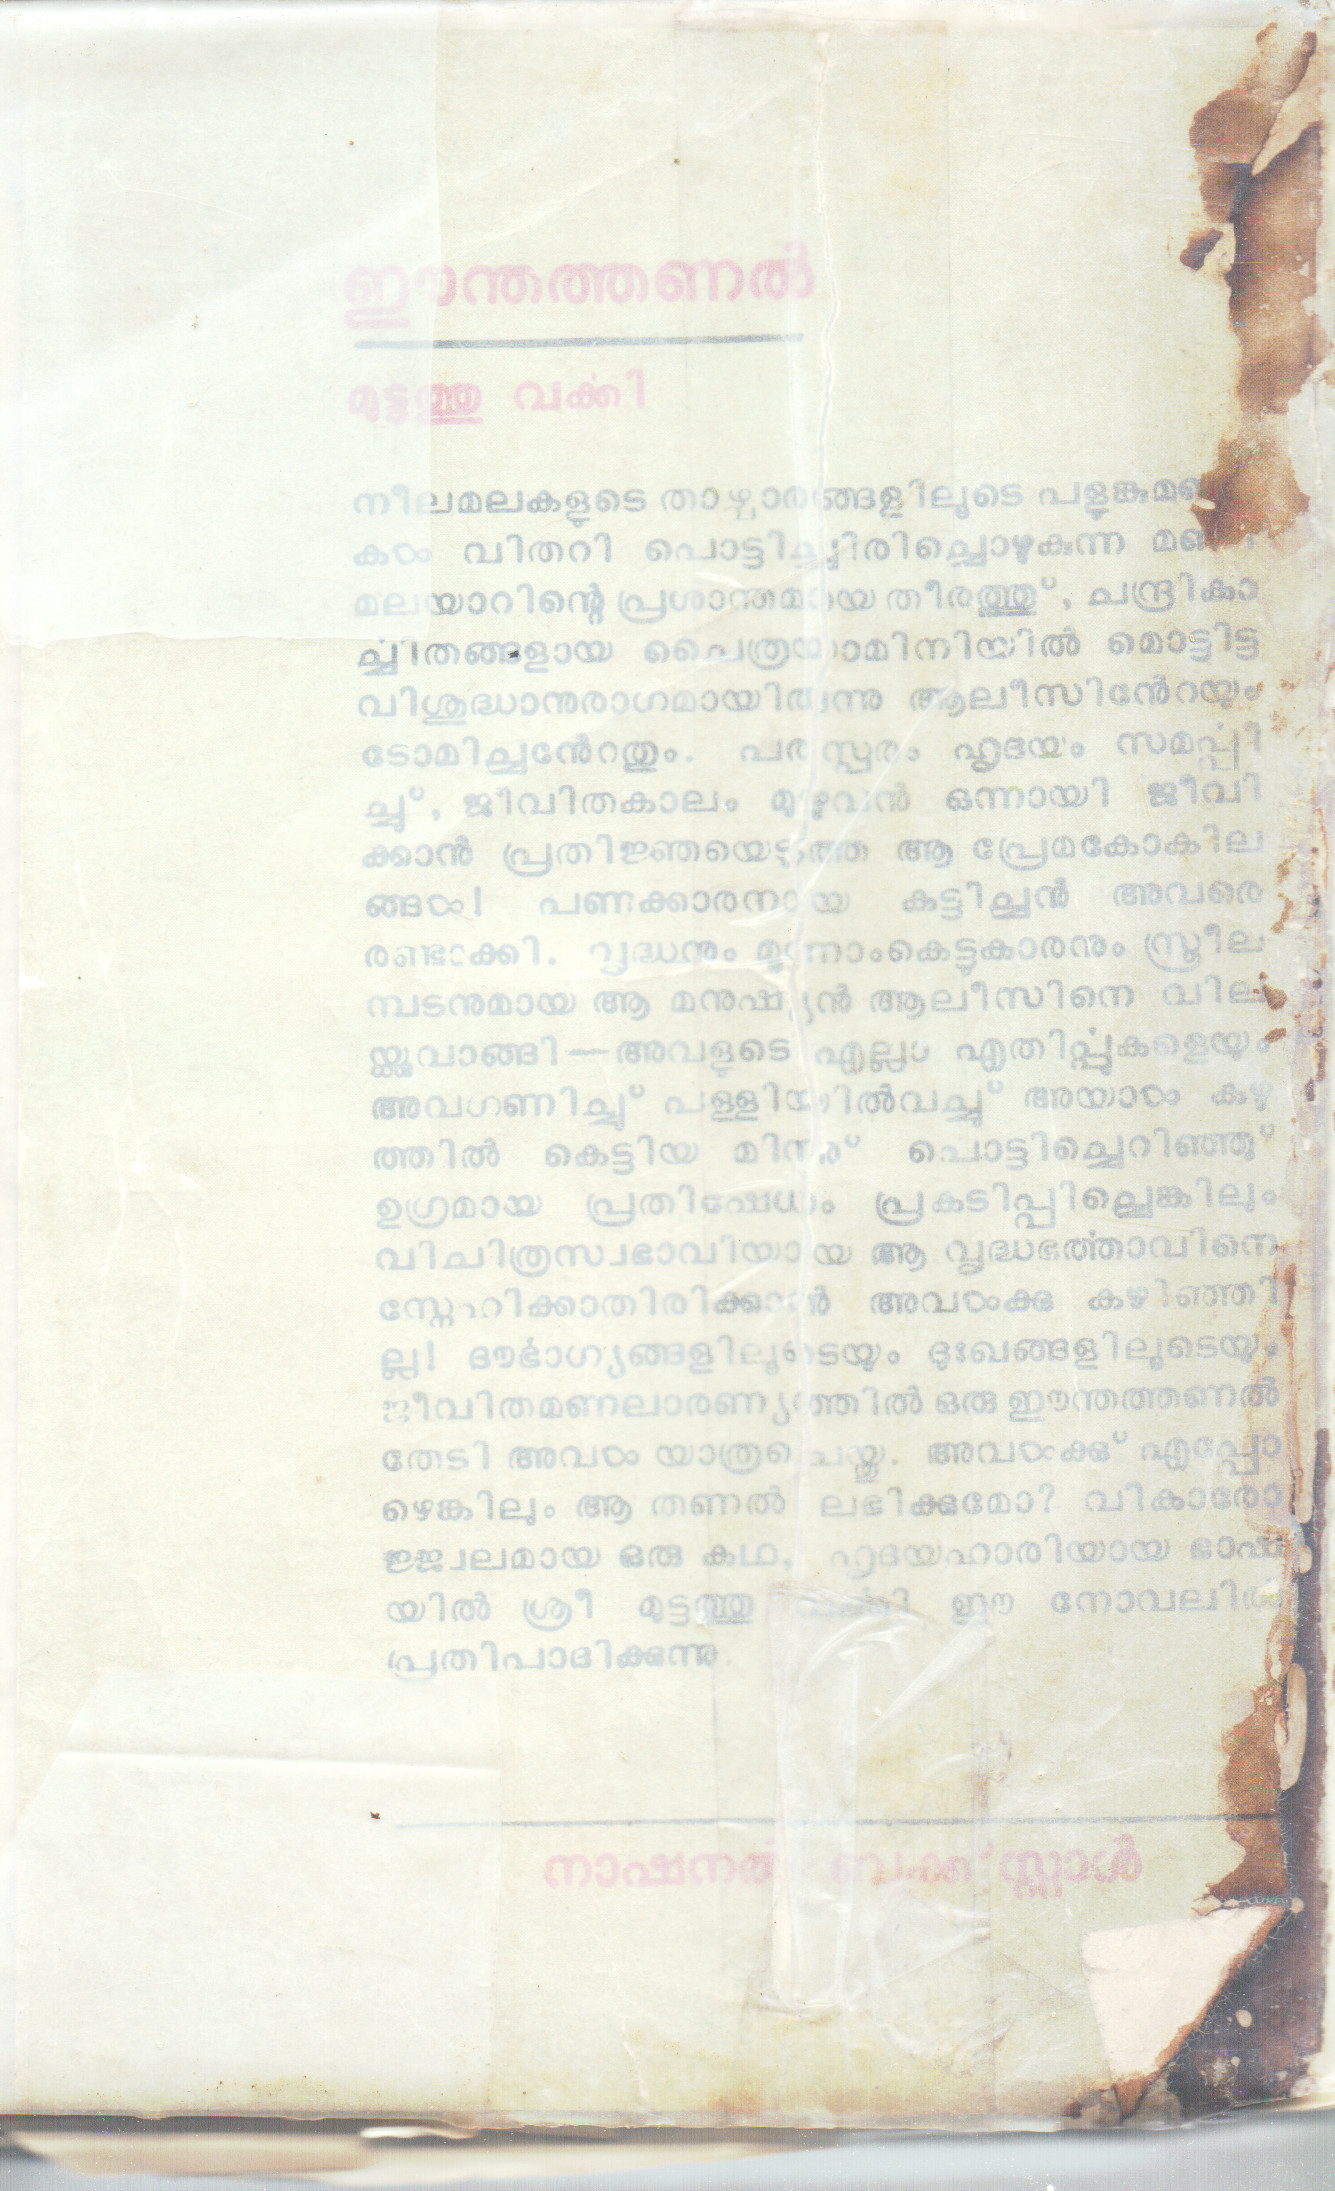 ഈന്തത്തണൽ
മുട്ടത്തു വർക്കി
നീലമലകളുടെ താഴ്വാരങ്ങളിലൂടെ
കൾ വിതറി പൊട്ടിച്ചിരിച്ചൊഴുകുന്ന
മലയാറിന്റെ പ്രശാന്തമായ തീരത്തു്, ചന്ദ്രികാ
ർച്ചിതങ്ങളായ ചൈത്രയാമിനിയിൽ മൊട്ടിട്ട
വിശുദ്ധാനുരാഗമായിരുന്നു ആലീസിൻേറയും
ടോമിച്ചൻേറതും. പരസ്പരം ഹൃദയം സമർപ്പി
ച്ചു്, ജീവിതകാലം മുഴുവൻ ഒന്നായി ജീവി
ക്കാൻ പ്രതിജ്ഞയെടുത്ത ആ പ്രേമകോകില
ങ്ങൾ! പണക്കാരനായ കുട്ടിച്ചൻ അവരെ
രണ്ടാക്കി. വൃദ്ധനും മൂന്നാംകെട്ടുകാരനും സ്ത്രീല
മ്പടനുമായ ആ മനുഷ്യൻ ആലീസിനെ വില
യ്ക്കുവാങ്ങി—അവളുടെ എല്ലാ എതിർപ്പുകളെയും
അവഗണിച്ചു് പള്ളിയിൽവച്ചു് അയാൾ കഴു
ത്തിൽ കെട്ടിയ മിന്നു് പൊട്ടിച്ചെറിഞ്ഞു്
ഉഗ്രമായ പ്രതിഷേധം പ്രകടിപ്പിച്ചെങ്കിലും
വിചിത്രസ്വഭാവിയായ ആ വൃദ്ധഭർത്താവിനെ
സ്നേഹിക്കാതിരിക്കാൻ അവൾക്കു കഴിഞ്ഞി
ല്ല! ദൗർഭാഗ്യങ്ങളിലൂടെയും ദുഃഖങ്ങളിലൂടെയും
ജീവിതമണലാരണ്യത്തിൽ ഒരു ഈന്തത്തണൽ
തേടി അവൾ യാത്രചെയ്തു. അവൾക്കു് എപ്പോ
ഴെങ്കിലും ആ തണൽ ലഭിക്കുമോ? വികാരോ
ജ്ജ്വലമായ ഒരു കഥ, ഹൃദയഹാരിയായ ഭാഷ
യിൽ ശ്രീ മുട്ടത്തു വർക്കി ഈ നോവലിൽ
പ്രതിപാദിക്കുന്നു
നാഷനൽ ബുക്ക് സ്റ്റാൾ